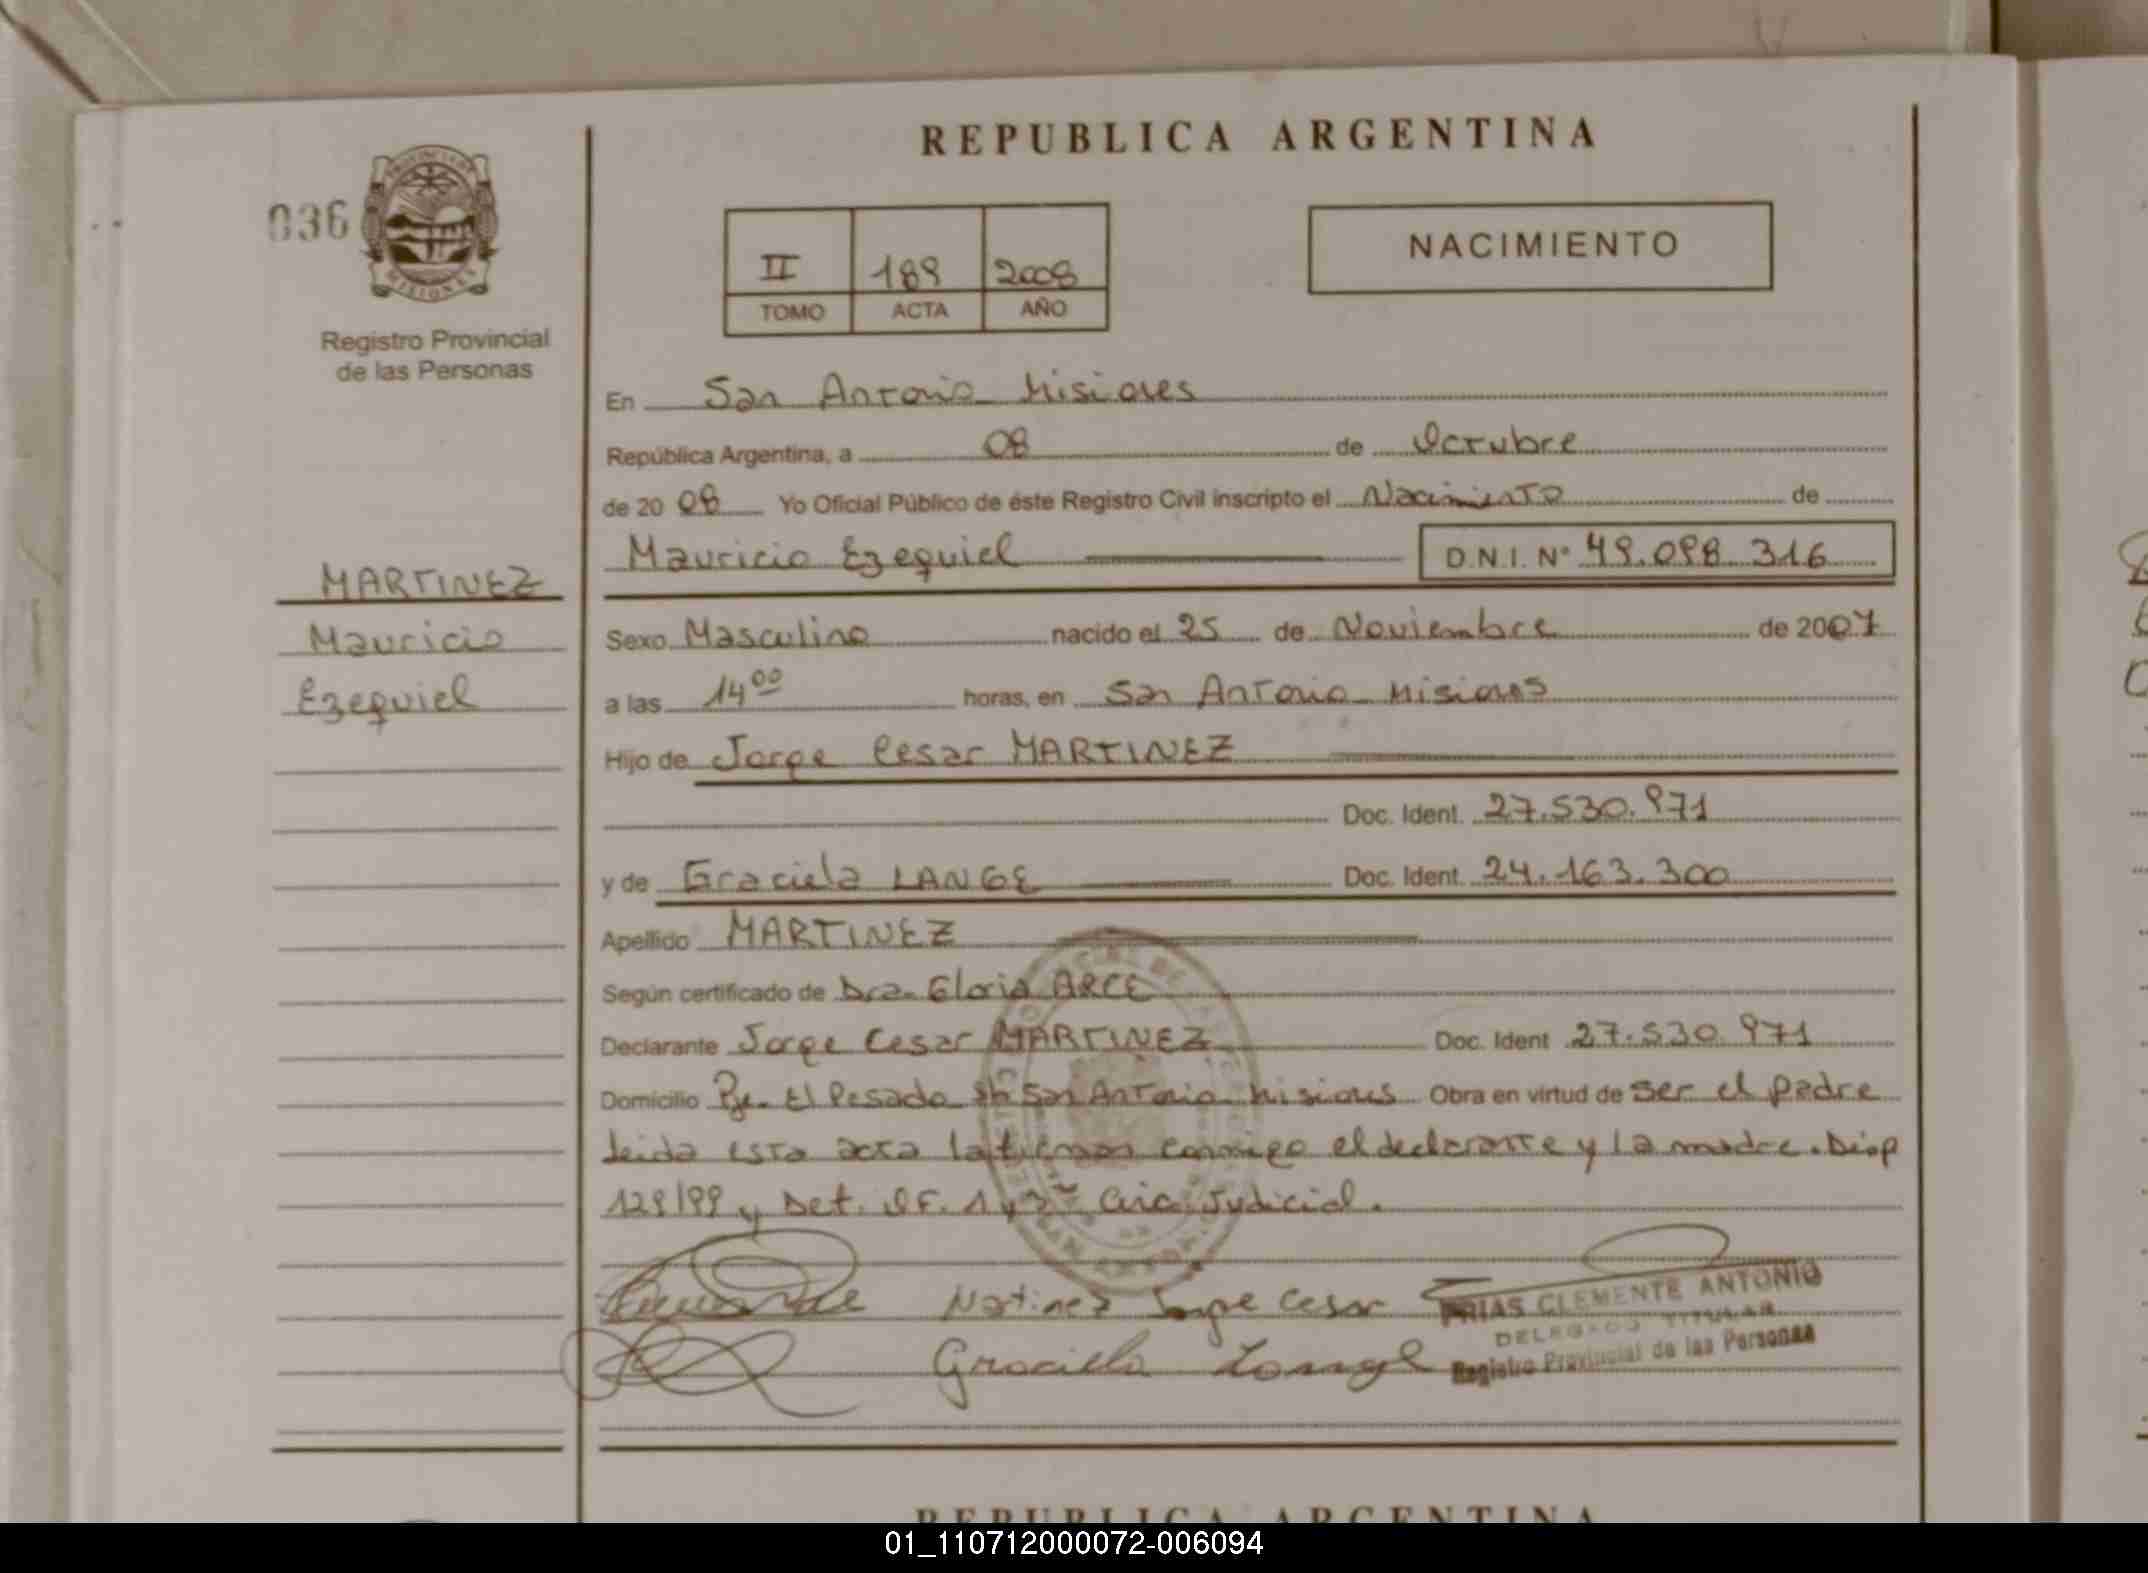 REPUBLICA ARGENTINA
036
PROVINCIA DE MISIONES
Registro Provincial
de las Personas
II 189 2008
TOMO ACTA AÑO
NACIMIENTO
En San Antonio Misiones
República Argentina, a 08 de Octubre
de 2008 Yo Oficial Público de éste Registro Civil inscripto el Nacimiento de
Mauricio Ezequiel D.N.I. Nº 49.098.316
MARTINEZ
Mauricio
Ezequiel
Sexo Masculino nacido el 25 de Noviembre de 2007
a las 14 00 horas, en San Antonio Misiones
Hijo de Jorge Cesar MARTINEZ
Doc. Ident. 27.530.971
y de Graciela LANGE Doc. Ident. 24.163.300
Apellido MARTINEZ
Según certificado de Dra. Gloria ARCE
Declarante Jorge Cesar MARTINEZ Doc. Ident 27.530.971
Domicilio Pje. El Pesado San Antonio Misiones Obra en virtud de ser el padre
leida esta acta la firman conmigo el declarante y la madre. Disp
129/99 y Det. Circ. Judicial.
Martinez Jorge Cesar
Graciela Lange
FRIAS CLEMENTE ANTONIO
DELEGADO TITULAR
Registro Provincial de las Personas
REPUBLICA ARGENTINA
01_110712000072-006094